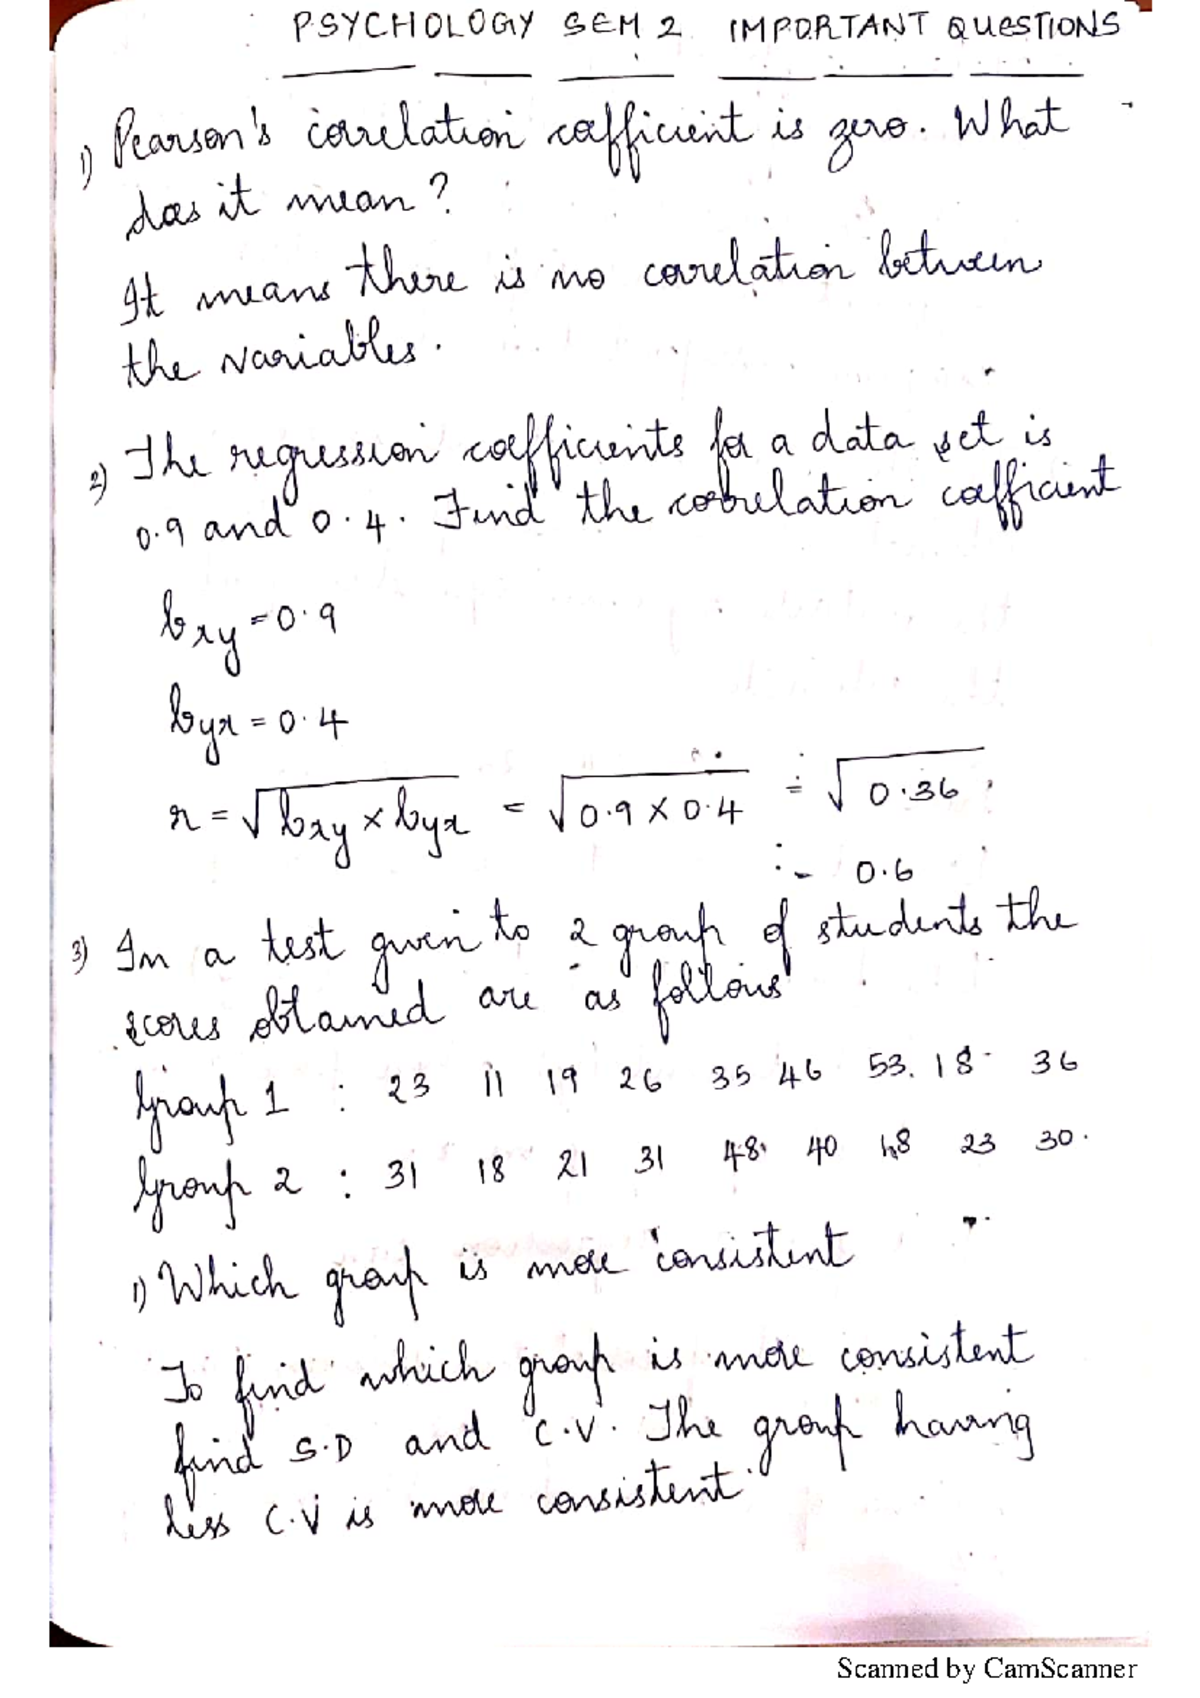 PSYCHOLOGY SEM 2 IMPORTANT QUESTIONS
1) Pearson's correlation coefficient is zero. What
does it mean?
It means there is no correlation between
the variables.
2) The regression coefficients for a data set is
0.9 and 0.4. Find the correlation coefficient
bxy = 0.9
byx = 0.4
r = √bxy × byx = √0.9 × 0.4 = √0.36
= 0.6
3) In a test given to 2 group of students the
scores obtained are as follows
Group 1 : 23 11 19 26 35 46 53. 18 36
Group 2 : 31 18 21 31 48 40 48 23 30.
1) Which group is more consistent
To find which group is more consistent
find S.D and C.V. The group having
less C.V is more consistent.
Scanned by CamScanner